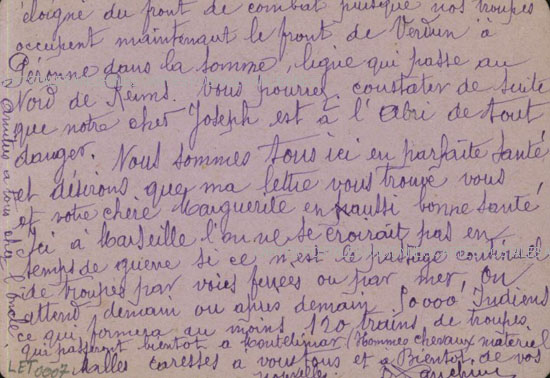 éloigné du front de combat puisque nos troupes
occupent maintenant le front de Verdun à
Péronne dans la somme, ligne qui passe au
Nord de Reims. Vous pourrez constater de suite
que notre cher Joseph est à l'Abri de tout
danger. Nous sommes tous ici en parfaite santé
et désirons que ma lettre vous trouve vous
et votre chère Marguerite en aussi bonne santé
Ici à Marseille l'on ne se croirait pas en
temps de guerre si ce n'est le passage continuel
de troupes par voies ferrées ou par mer, On
attend demain ou après demain 50000 Indiens
ce qui formera au moins 120 trains de troupes
que passeront bientôt à Montelimar (Hommes chevaux matériel
Malles caresses à vous tous et à Bientôt de vos
nouvelles.
à vous chez
LET0007